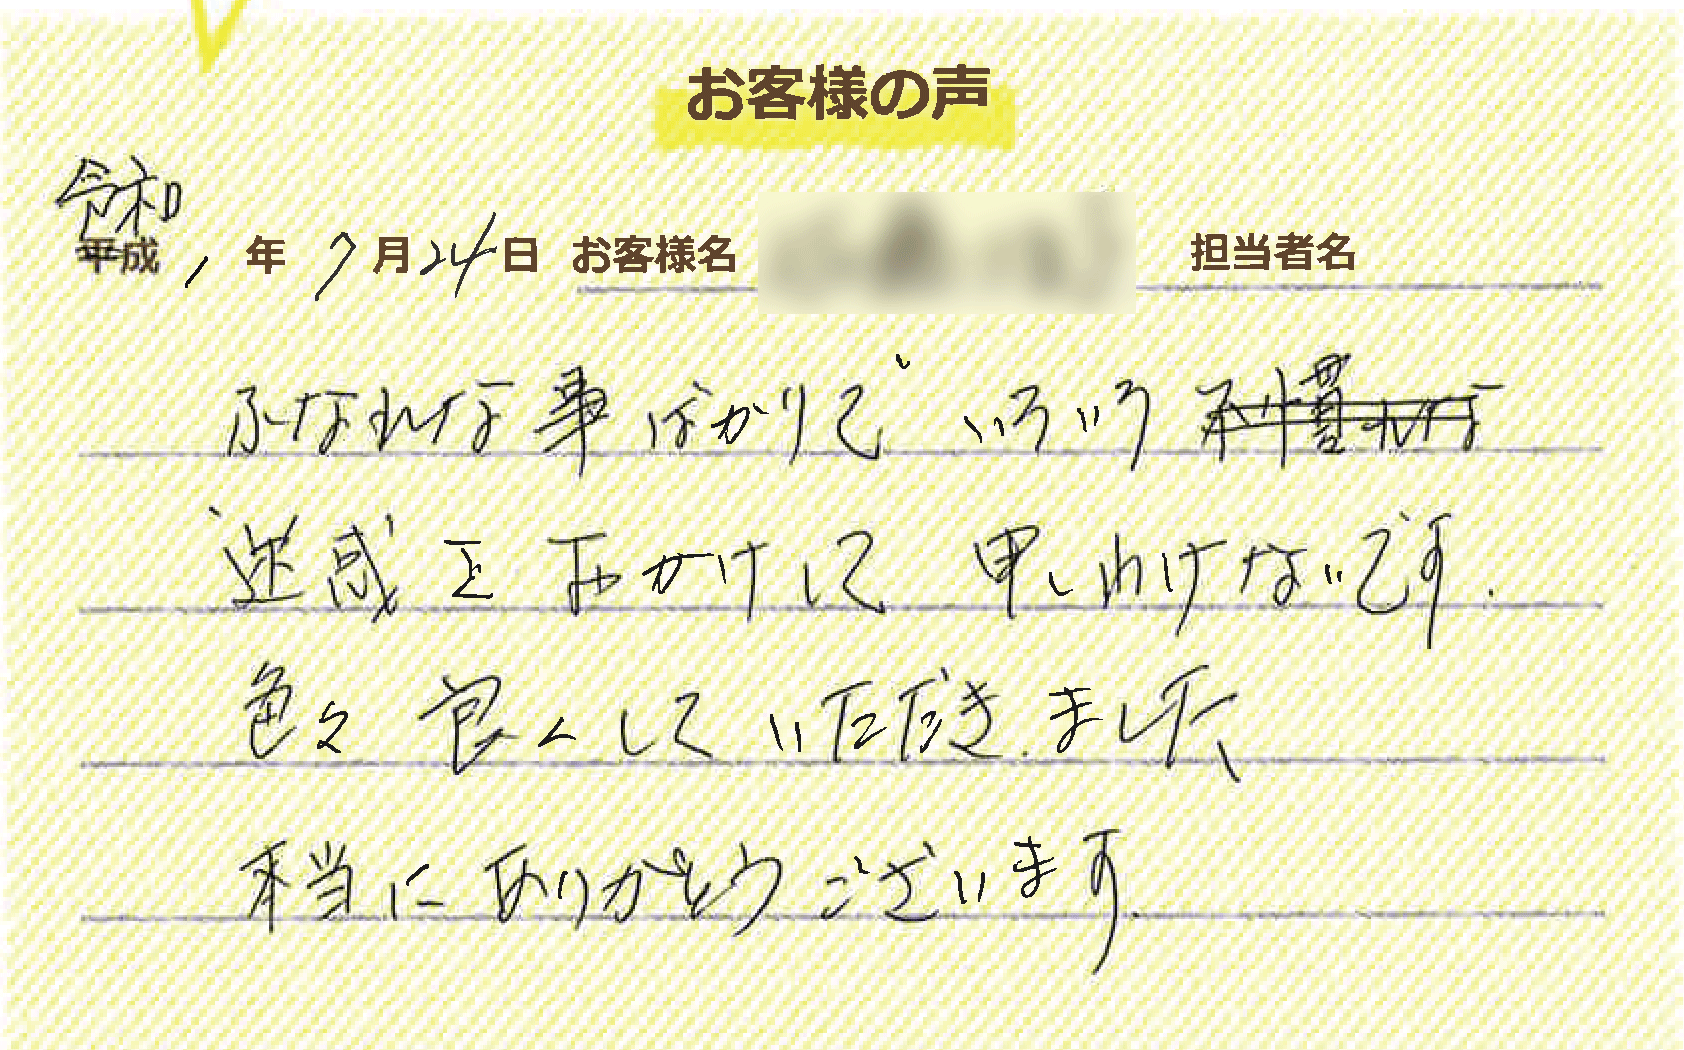 お客様の声
令和
平成 1 年 7 月 24 日 お客様名 担当者名
ふなれな事ばかりで いろいろ 不慣れな
迷惑を おかけして 申しわけないです.
色々 良くして いただきました、
本当に ありがとう ございます.